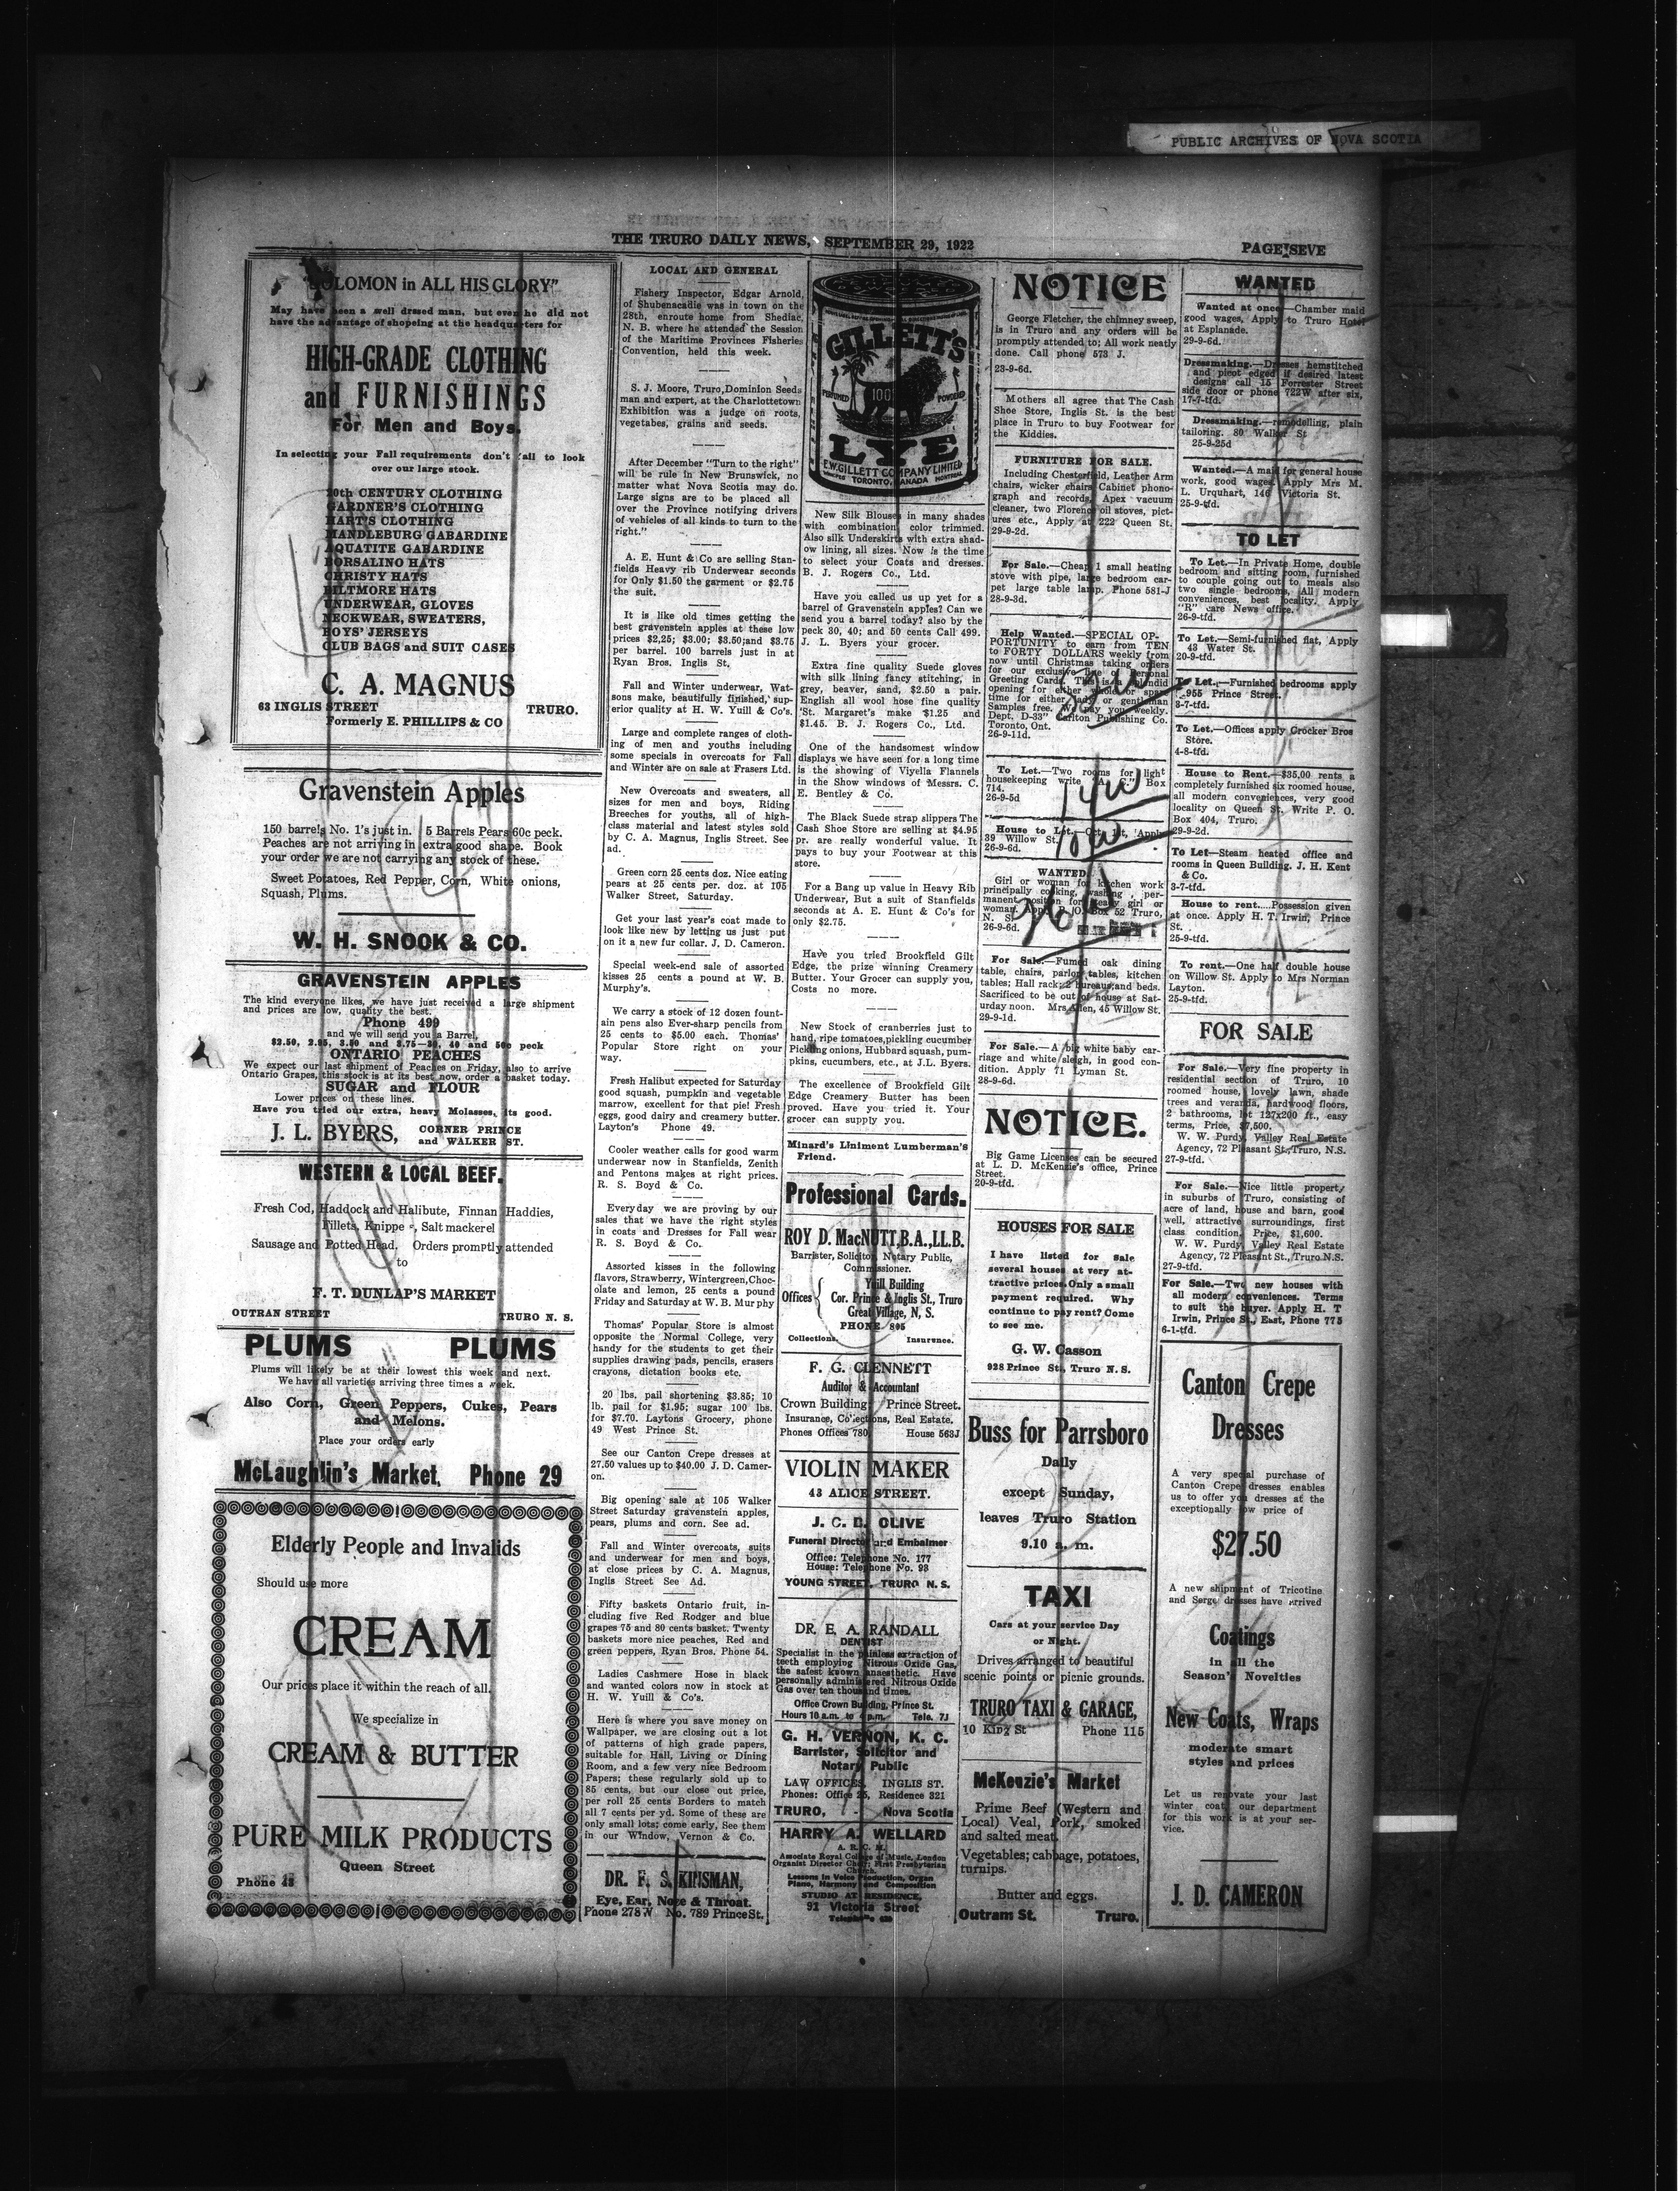 PUBLIC ARCHIVES OF NOVA SCOTIA
THE TRURO DAILY NEWS, SEPTEMBER 29, 1922
PAGE SEVE
"SOLOMON in ALL HIS GLORY"
May have been a well dressed man, but even he did not
have the advantage of shopeing at the headquarters for
HIGH-GRADE CLOTHING
and FURNISHINGS
For Men and Boys.
In selecting your Fall requirements don't fail to look
over our large stock.
20th CENTURY CLOTHING
GARDNER'S CLOTHING
HART'S CLOTHING
MANDLEBURG GABARDINE
AQUATITE GABARDINE
BORSALINO HATS
CHRISTY HATS
BILTMORE HATS
UNDERWEAR, GLOVES
NECKWEAR, SWEATERS,
BOYS' JERSEYS
CLUB BAGS and SUIT CASES
C. A. MAGNUS
63 INGLIS STREET TRURO.
Formerly E. PHILLIPS & CO
Gravenstein Apples
150 barrels No. 1's just in. 5 Barrels Pears 60c peck.
Peaches are not arriving in extra good shape. Book
your order we are not carrying any stock of these.
Sweet Potatoes, Red Pepper, Corn, White onions,
Squash, Plums.
W. H. SNOOK & CO.
GRAVENSTEIN APPLES
The kind everyone likes, we have just received a large shipment
and prices are low, quality the best.
Phone 499
and we will send you a Barrel,
$2.50, 2.95, 3.50 and 3.75—30, 40 and 50c peck
ONTARIO PEACHES
We expect our last shipment of Peaches on Friday, also to arrive
Ontario Grapes, this stock is at its best now, order a basket today.
SUGAR and FLOUR
Lower prices on these lines.
Have you tried our extra, heavy Molasses, its good.
J. L. BYERS, CORNER PRINCE
and WALKER ST.
WESTERN & LOCAL BEEF.
Fresh Cod, Haddock and Halibute, Finnan Haddies,
Fillets, Knippe s, Salt mackerel
Sausage and Potted Head. Orders promptly attended
to
F. T. DUNLAP'S MARKET
OUTRAN STREET TRURO N. S.
PLUMS PLUMS
Plums will likely be at their lowest this week and next.
We have all varieties arriving three times a week.
Also Corn, Green Peppers, Cukes, Pears
and Melons.
Place your orders early
McLaughlin's Market, Phone 29
Elderly People and Invalids
Should use more
CREAM
Our prices place it within the reach of all.
We specialize in
CREAM & BUTTER
PURE MILK PRODUCTS
Queen Street
Phone 43
LOCAL AND GENERAL
Fishery Inspector, Edgar Arnold,
of Shubenacadie was in town on the
28th, enroute home from Shediac,
N. B. where he attended the Session
of the Maritime Provinces Fisheries
Convention, held this week.
S. J. Moore, Truro, Dominion Seeds
man and expert, at the Charlottetown
Exhibition was a judge on roots,
vegetabes, grains and seeds.
After December "Turn to the right"
will be rule in New Brunswick, no
matter what Nova Scotia may do.
Large signs are to be placed all
over the Province notifying drivers
of vehicles of all kinds to turn to the
right."
A. E. Hunt & Co are selling Stan-
fields Heavy rib Underwear seconds
for Only $1.50 the garment or $2.75
the suit.
It is like old times getting the
best gravenstein apples at these low
prices $2,25; $3.00; $3.50; and $3.75
per barrel. 100 barrels just in at
Ryan Bros. Inglis St.
Fall and Winter underwear, Wat-
sons make, beautifully finished, sup-
erior quality at H. W. Yuill & Co's.
Large and complete ranges of cloth-
ing of men and youths including
some specials in overcoats for Fall
and Winter are on sale at Frasers Ltd.
New Overcoats and sweaters, all
sizes for men and boys, Riding
Breeches for youths, all of high-
class material and latest styles sold
by C. A. Magnus, Inglis Street. See
ad.
Green corn 25 cents doz. Nice eating
pears at 25 cents per. doz. at 105
Walker Street, Saturday.
Get your last year's coat made to
look like new by letting us just put
on it a new fur collar. J. D. Cameron.
Special week-end sale of assorted
kisses 25 cents a pound at W. B.
Murphy's.
We carry a stock of 12 dozen fount-
ain pens also Ever-sharp pencils from
25 cents to $5.00 each. Thomas'
Popular Store right on your
way.
Fresh Halibut expected for Saturday
good squash, pumpkin and vegetable
marrow, excellent for that pie! Fresh
eggs, good dairy and creamery butter.
Layton's Phone 49.
Cooler weather calls for good warm
underwear now in Stanfields, Zenith
and Pentons makes at right prices.
R. S. Boyd & Co.
Everyday we are proving by our
sales that we have the right styles
in coats and Dresses for Fall wear
R. S. Boyd & Co.
Assorted kisses in the following
flavors, Strawberry, Wintergreen, Choc-
olate and lemon, 25 cents a pound
Friday and Saturday at W. B. Murphy
Thomas' Popular Store is almost
opposite the Normal College, very
handy for the students to get their
supplies drawing pads, pencils, erasers
crayons, dictation books etc.
20 lbs. pail shortening $3.85; 10
lb. pail for $1.95; sugar 100 lbs.
for $7.70. Laytons Grocery, phone
49 West Prince St.
See our Canton Crepe dresses at
27.50 values up to $40.00 J. D. Camer-
on.
Big opening sale at 105 Walker
Street Saturday gravenstein apples,
pears, plums and corn. See ad.
Fall and Winter overcoats, suits
and underwear for men and boys,
at close prices by C. A. Magnus,
Inglis Street See Ad.
Fifty baskets Ontario fruit, in-
cluding five Red Rodger and blue
grapes 75 and 80 cents basket. Twenty
baskets more nice peaches, Red and
green peppers, Ryan Bros. Phone 54.
Ladies Cashmere Hose in black
and wanted colors now in stock at
H. W. Yuill & Co's.
Here is where you save money on
Wallpaper. we are closing out a lot
of patterns of high grade papers,
suitable for Hall, Living or Dining
Room, and a few very nice Bedroom
Papers; these regularly sold up to
85 cents, but our close out price,
per roll 25 cents Borders to match
all 7 cents per yd. Some of these are
only small lots; come early, See them
in our Window, Vernon & Co.
DR. F. S. KINSMAN,
Eye, Ear, Nose & Throat.
Phone 278W No. 789 Prince St.
GILLETT'S
PERFUMED 100% POWDERED
LYE
E.W.GILLETT COMPANY LIMITED
WINNIPEG TORONTO, CANADA MONTREAL
New Silk Blouses in many shades
with combination color trimmed.
Also silk Underskirts with extra shad-
ow lining, all sizes. Now is the time
to select your Coats and dresses.
B. J. Rogers Co., Ltd.
Have you called us up yet for a
barrel of Gravenstein apples? Can we
send you a barrel today? also by the
peck 30, 40; and 50 cents Call 499.
J. L. Byers your grocer.
Extra fine quality Suede gloves
with silk lining fancy stitching, in
grey, beaver, sand, $2.50 a pair.
English all wool hose fine quality
'St. Margaret's make $1.25 and
$1.45. B. J. Rogers Co., Ltd.
One of the handsomest window
displays we have seen for a long time
is the showing of Viyella Flannels
in the Show windows of Messrs. C.
E. Bentley & Co.
The Black Suede strap slippers The
Cash Shoe Store are selling at $4.95
pr. are really wonderful value. It
pays to buy your Footwear at this
store.
For a Bang up value in Heavy Rib
Underwear, But a suit of Stanfields
seconds at A. E. Hunt & Co's for
only $2.75.
Have you tried Brookfield Gilt
Edge, the prize winning Creamery
Butter. Your Grocer can supply you,
Costs no more.
New Stock of cranberries just to
hand, ripe tomatoes, pickling cucumber
Pickling onions, Hubbard squash, pum-
pkins, cucumbers, etc., at J.L. Byers.
The excellence of Brookfield Gilt
Edge Creamery Butter has been
proved. Have you tried it. Your
grocer can supply you.
Minard's Liniment Lumberman's
Friend.
Professional Cards.
ROY D. MacNUTT, B.A., LL.B.
Barrister, Solicitor, Notary Public,
Commissioner.
Offices Yuill Building
Cor. Prince & Inglis St., Truro
Great Village, N. S.
PHONE 895
Collections. Insurence.
F. G. CLENNETT
Auditor & Accountant
Crown Building Prince Street.
Insurance, Collections, Real Estate.
Phones Offices 780 House 563J
VIOLIN MAKER
43 ALICE STREET.
J. C. B. OLIVE
Funeral Director and Embalmer
Office: Telephone No. 177
House: Telephone No. 93
YOUNG STREET, TRURO N. S.
DR. E. A. RANDALL
DENTIST
Specialist in the painless extraction of
teeth employing Nitrous Oxide Gas,
the safest known anaesthetic. Have
personally administered Nitrous Oxide
Gas over ten thousand times.
Office Crown Building, Prince St.
Hours 10 a.m. to p.m. Tele. 7J
G. H. VERNON, K. C.
Barrister, Solicitor and
Notary Public
LAW OFFICES, INGLIS ST.
Phones: Office 25, Residence 321
TRURO, - Nova Scotia
HARRY A. WELLARD
A. R. C. M.
Associate Royal College of Music, London
Organist Director Choir; First Presbyterian
Church.
Lessons in Voice Production, Organ
Piano, Harmony and Composition
STUDIO AT RESIDENCE,
91 Victoria Street
NOTICE
George Fletcher, the chimney sweep,
is in Truro and any orders will be
promptly attended to; All work neatly
done. Call phone 573 J.
23-9-6d.
Mothers all agree that The Cash
Shoe Store, Inglis St. is the best
place in Truro to buy Footwear for
the Kiddies.
FURNITURE FOR SALE.
Including Chesterfield, Leather Arm
chairs, wicker chairs Cabinet phono-
graph and records, Apex vacuum
cleaner, two Florence oil stoves, pict-
ures etc., Apply at 222 Queen St.
29-9-2d.
For Sale.—Cheap 1 small heating
stove with pipe, large bedroom car-
pet large table lamp. Phone 581-J
28-9-3d.
Help Wanted.—SPECIAL OP-
PORTUNITY to earn from TEN
to FORTY DOLLARS weekly from
now until Christmas taking orders
for our exclusive line of Personal
Greeting Cards. This is a splendid
opening for either whole or spare
time for either lady or gentleman
Samples free. We pay you weekly.
Dept. D-33" Carlton Publishing Co.
Toronto, Ont.
26-9-11d.
To Let.—Two rooms for light
housekeeping write "A. C." Box
714.
26-9-5d
House to Let.—Oct. 1st, Apply
39 Willow St.
26-9-6d.
WANTED
Girl or woman for kitchen work
principally cooking, washing, per-
manent position for steady girl or
woman. Apply P. O. Box 52 Truro,
N. S.
26-9-6d.
For Sale.—Fumed oak dining
table, chairs, parlor tables, kitchen
tables; Hall rack; 2 bureaus; and beds.
Sacrificed to be out of house at Sat-
urday noon. Mrs Allen, 45 Willow St.
29-9-1d.
For Sale.—A big white baby car-
riage and white sleigh, in good con-
dition. Apply 71 Lyman St.
28-9-6d.
NOTICE.
Big Game Licenses can be secured
at L. D. McKenzie's office, Prince
Street.
20-9-tfd.
HOUSES FOR SALE
I have listed for sale
several houses at very at-
tractive prices. Only a small
payment required. Why
continue to pay rent? Come
to see me.
G. W. Casson
928 Prince St., Truro N. S.
Buss for Parrsboro
Daily
except Sunday,
leaves Truro Station
9.10 a. m.
TAXI
Cars at your service Day
or Night.
Drives arranged to beautiful
scenic points or picnic grounds.
TRURO TAXI & GARAGE,
10 King St Phone 115
McKenzie's Market
Prime Beef (Western and
Local) Veal, Pork, smoked
and salted meat.
Vegetables; cabbage, potatoes,
turnips.
Butter and eggs.
Outram St. Truro.
WANTED
Wanted at once—Chamber maid
good wages, Apply to Truro Hotel
at Esplanade.
29-9-6d.
Dressmaking.—Dresses hemstitched
and picot edged if desired latest
designs call 15 Forrester Street
side door or phone 722W after six,
17-7-tfd.
Dressmaking.—remodelling, plain
tailoring. 80 Walker St
25-9-25d
Wanted.—A maid for general house
work, good wages. Apply Mrs M.
L. Urquhart, 146 Victoria St.
25-9-tfd.
TO LET
To Let.—In Private Home, double
bedroom and sitting room, furnished
to couple going out to meals also
two single bedrooms, All modern
conveniences, best locality. Apply
"R" care News office.
26-9-tfd.
To Let.—Semi-furnished flat, Apply
43 Water St.
20-9-tfd.
To Let.—Furnished bedrooms apply
955 Prince Street.
3-7-tfd.
To Let.—Offices apply Crocker Bros
Store.
4-8-tfd.
House to Rent.—$35.00 rents a
completely furnished six roomed house,
all modern conveniences, very good
locality on Queen St. Write P. O.
Box 404, Truro.
29-9-2d.
To Let—Steam heated office and
rooms in Queen Building. J. H. Kent
& Co.
3-7-tfd.
House to rent....Possession given
at once. Apply H. T. Irwin, Prince
St.
25-9-tfd.
To rent.—One half double house
on Willow St. Apply to Mrs Norman
Layton.
25-9-tfd.
FOR SALE
For Sale.—Very fine property in
residential section of Truro, 10
roomed house, lovely lawn, shade
trees and veranda, hardwood floors,
2 bathrooms, lot 127x200 ft., easy
terms, Price, $7,500.
W. W. Purdy, Valley Real Estate
Agency, 72 Pleasant St., Truro, N.S.
27-9-tfd.
For Sale.—Nice little property
in suburbs of Truro, consisting of
acre of land, house and barn, good
well, attractive surroundings, first
class condition, Price, $1,600.
W. W. Purdy, Valley Real Estate
Agency, 72 Pleasant St., Truro N.S.
27-9-tfd.
For Sale.—Two new houses with
all modern conveniences. Terms
to suit the buyer. Apply H. T
Irwin, Prince St., East, Phone 775
6-1-tfd.
Canton Crepe
Dresses
A very special purchase of
Canton Crepe dresses enables
us to offer you dresses at the
exceptionally low price of
$27.50
A new shipment of Tricotine
and Serge dresses have arrived
Coatings
in all the
Season's Novelties
New Coats, Wraps
moderate smart
styles and prices
Let us renovate your last
winter coat, our department
for this work is at your ser-
vice.
J. D. CAMERON